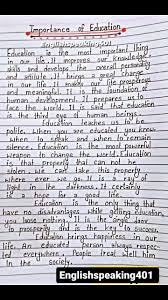 Importance of Education
Englishspeaking401
Education is the most important thing
in our life. It improves our knowledge
skills and develops the overall personality
and attitude. It brings a great change
in our life. It makes our life prosperous
and meaningful. It is the foundation of
human development. It prepares us to
face the world. It is said that education
is the third eye of human beings.
Education teaches us to be
polite. When you are educated you know
when to speak and where to remain
silence. Education is the most powerful
weapon to change the world. Education
is that property that can not be
stolen. We can take this property
where ever we go. It is a ray of
light in the darkness. It certainly
is a hope for a good life.
Education is the only thing that
have no disadvantages while getting education
you loose nothing. It is the single door
to prosperity and is the key to success.
Education brings happiness in our
life. An educated person always respec
ted everywhere. People treat well him
in the society.
Englishspeaking401